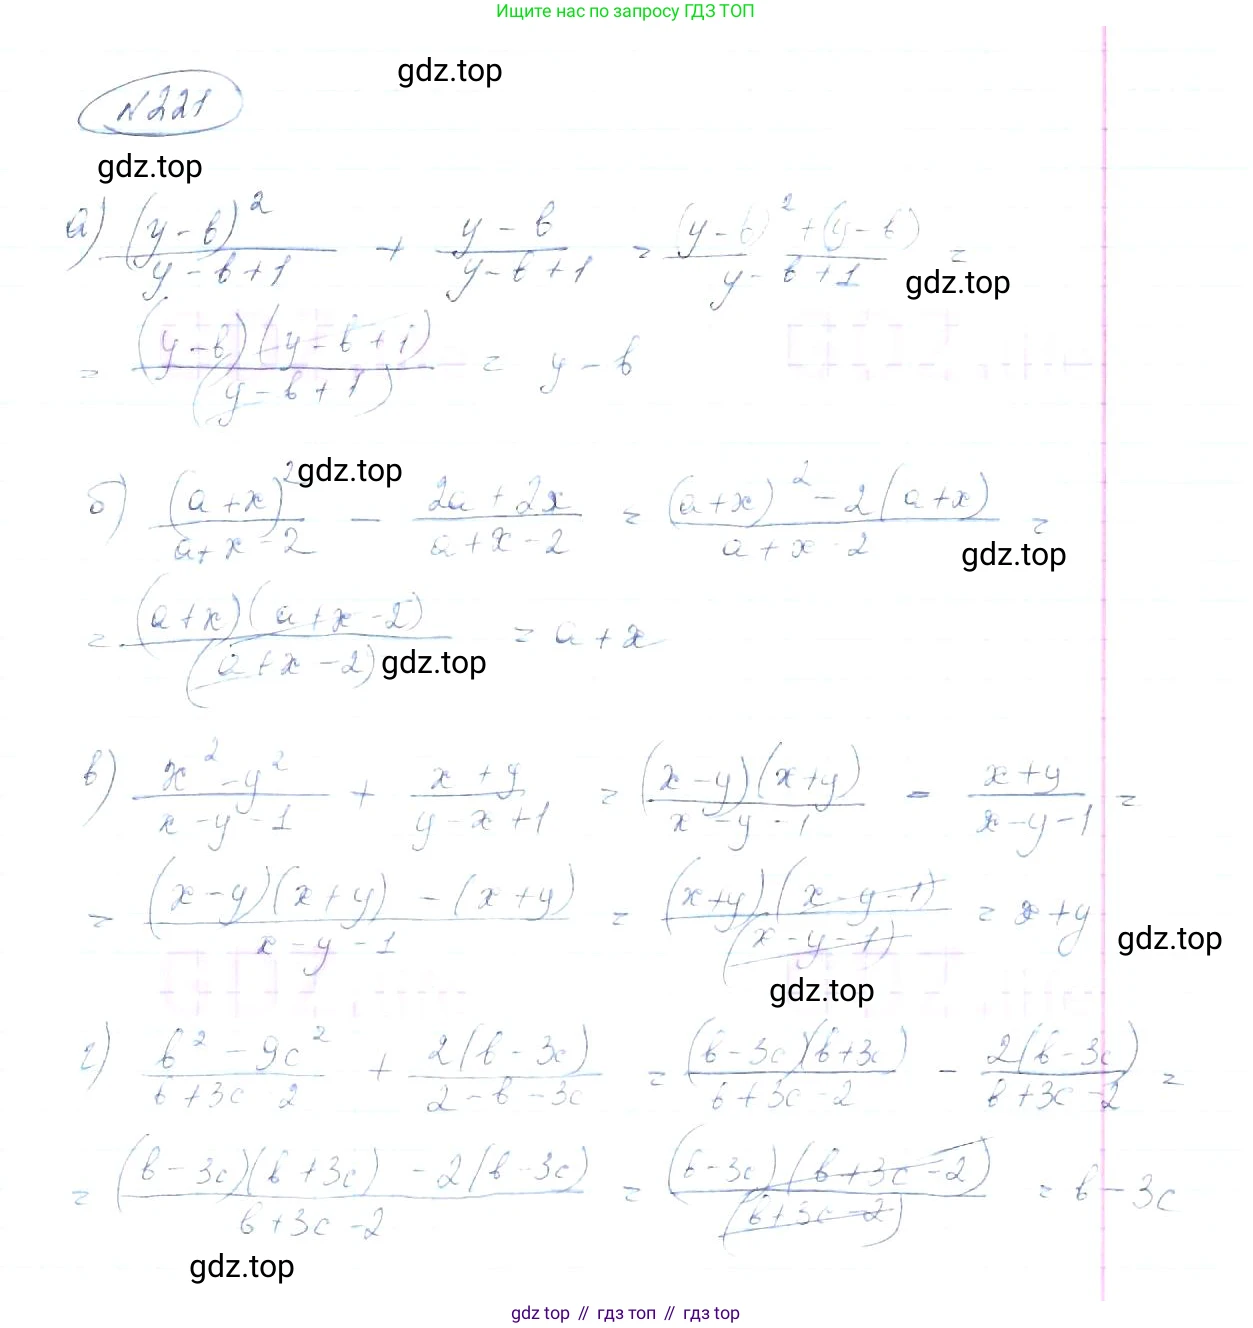 Ищите нас по запросу ГДЗ ТОП
gdz.top
№221
gdz.top
а) (y-b)²/(y-b+1) + (y-b)/(y-b+1) = ((y-b)²+(y-b))/(y-b+1) =
gdz.top
= (y-b)(y-b+1)/(y-b+1) = y-b
gdz.top
б) (a+x)²/(a+x-2) - (2a+2x)/(a+x-2) = ((a+x)²-2(a+x))/(a+x-2) =
gdz.top
= (a+x)(a+x-2)/(a+x-2) = a+x
gdz.top
в) (x²-y²)/(x-y-1) + (x+y)/(y-x+1) = (x-y)(x+y)/(x-y-1) - (x+y)/(x-y-1) =
= ((x-y)(x+y)-(x+y))/(x-y-1) = (x+y)(x-y-1)/(x-y-1) = x+y
gdz.top
gdz.top
г) (b²-9c²)/(b+3c-2) + 2(b-3c)/(2-b-3c) = (b-3c)(b+3c)/(b+3c-2) - 2(b-3c)/(b+3c-2) =
= ((b-3c)(b+3c)-2(b-3c))/(b+3c-2) = (b-3c)(b+3c-2)/(b+3c-2) = b-3c
gdz.top
gdz top // гдз топ // gdz top